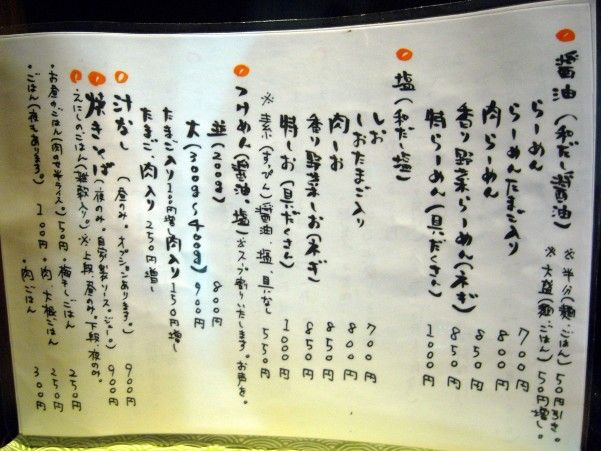 醤油(和だし醤油)
※半分(麺・ごはん)50円引き。
※大盛(麺・ごはん)50円増し。
らーめん 700円
らーめんたまご入り 800円
肉らーめん 850円
香り野菜らーめん(ネギ) 850円
特らーめん(具だくさん) 1000円
塩(和だし塩)
しお 700円
しおたまご入り 800円
肉しお 850円
香り野菜しお(ネギ) 850円
特しお(具だくさん) 1000円
※素(すっぴん)醤油、塩、具なし 550円
つけめん(醤油、塩)※スープ割りいたします。お声を。
並(200g) 800円
大(300g〜400g) 900円
たまご入り100円増し 肉入り150円増し
たまご 肉入り 250円増し
汁なし(昼のみ。オプションあります。) 900円
焼きそば(夜のみ。自家製ソース。) 900円
えにしのごはん(雑穀入り。)※上段 昼のみ。下段 夜のみ。
・お昼のごはん(肉のせ半ライス)50円 ・梅干しごはん 250円
・ごはん(夜もあります。)100円 ・肉、大根ごはん 250円
・肉ごはん 300円